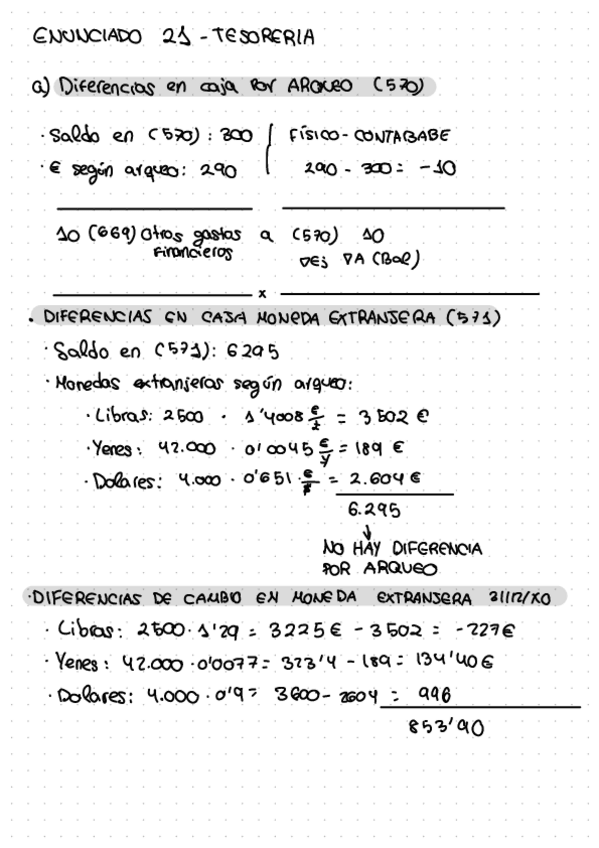 ENUNCIADO 21 - TESORERIA
a) Diferencias en caja por ARQUEO (570)
· Saldo en (570): 300
FÍSICO - CONTABABE
· € según arqueo: 290
290 - 300 = -10
10 (669) Otros gastos a (570) 10
Financieros
∇Ej ∇A (Bal)
x
. DIFERENCIAS EN CAJA MONEDA EXTRANJERA (571)
· Saldo en (571): 6295
· Monedas extranjeras según arqueo:
· Libras: 2500 · 1'4008 €/£ = 3502 €
· Yenes: 42.000 · 0'0045 €/y = 189 €
· Dolares: 4.000 · 0'651 · €/$ = 2.604 €
6.295
↓
NO HAY DIFERENCIA
POR ARQUEO
· DIFERENCIAS DE CAMBIO EN MONEDA EXTRANJERA 31/12/X0
· Libras: 2500 · 1'29 = 3225€ - 3502 = -227€
· Yenes: 42.000 · 0'0077 = 323'4 - 189 = 134'40€
· Dolares: 4.000 · 0'9 = 3600 - 2604 = 996
853'90